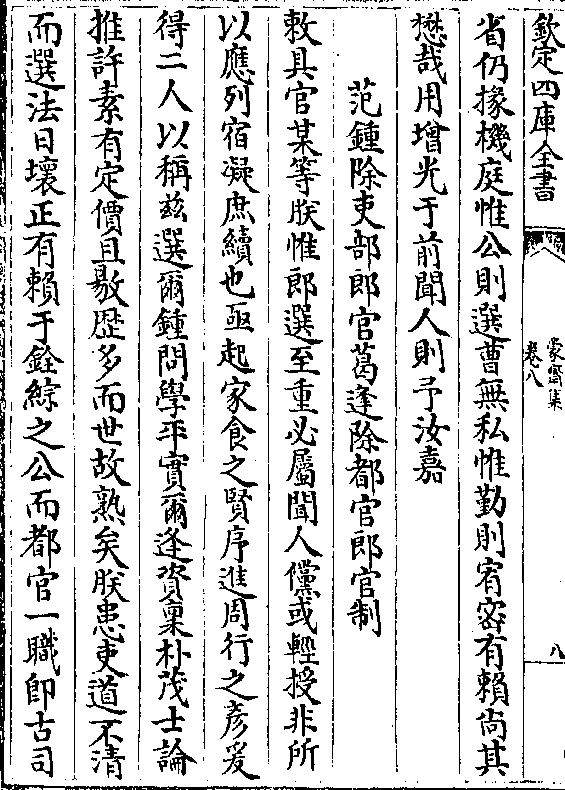 欽定四庫全書
蒙齋集
卷八
八
省仍掾機庭惟公則選曹無私惟勤則宥密有賴尚其
懋哉用增光于前聞人則予汝嘉
范鍾除吏部郎官葛逢除都官郎官制
敕具官某等朕惟郎選至重必屬聞人儻或輕授非所
以應列宿凝庶績也亟起家食之賢序進周行之彥爰
得二人以稱兹選爾鍾問學平實爾逢資稟朴茂士論
推許素有定價且敭歴多而世故熟矣朕患吏道不清
而選法日壞正有賴于銓綜之公而都官一職即古司